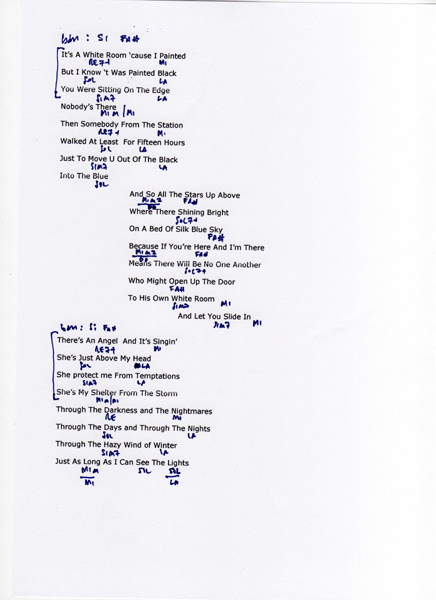 bm : Si FA#
It's A White Room 'cause I Painted
RE7+ Mi
But I Know 't Was Painted Black
SOL LA
You Were Sitting On The Edge
SIM7 LA
Nobody's There
MIM / MI
Then Somebody From The Station
RE7+ Mi
Walked At Least For Fifteen Hours
SOL LA
Just To Move U Out Of The Black
SIM7 LA
Into The Blue
SOL
And So All The Stars Up Above
MIM7 FA#
Where There Shining Bright
SOL7+
On A Bed Of Silk Blue Sky
FA#
Because If You're Here And I'm There
MIM7 FA#
Means There Will Be No One Another
SOL7+
Who Might Open Up The Door
FA#
To His Own White Room
SIM7 MI
And Let You Slide In
SIM7 MI
bm : Si FA#
There's An Angel And It's Singin'
RE7+ Mi
She's Just Above My Head
SOL LA
She protect me From Temptations
SIM7 LA
She's My Shelter From The Storm
MIM/MI
Through The Darkness and The Nightmares
RE Mi
Through The Days and Through The Nights
SOL LA
Through The Hazy Wind of Winter
SIM7 LA
Just As Long As I Can See The Lights
MIM SOL SOL
MI LA